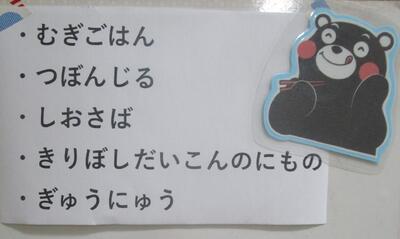 ・むぎごはん
・つぼんじる
・しおさば
・きりぼしだいこんのにもの
・ぎゅうにゅう